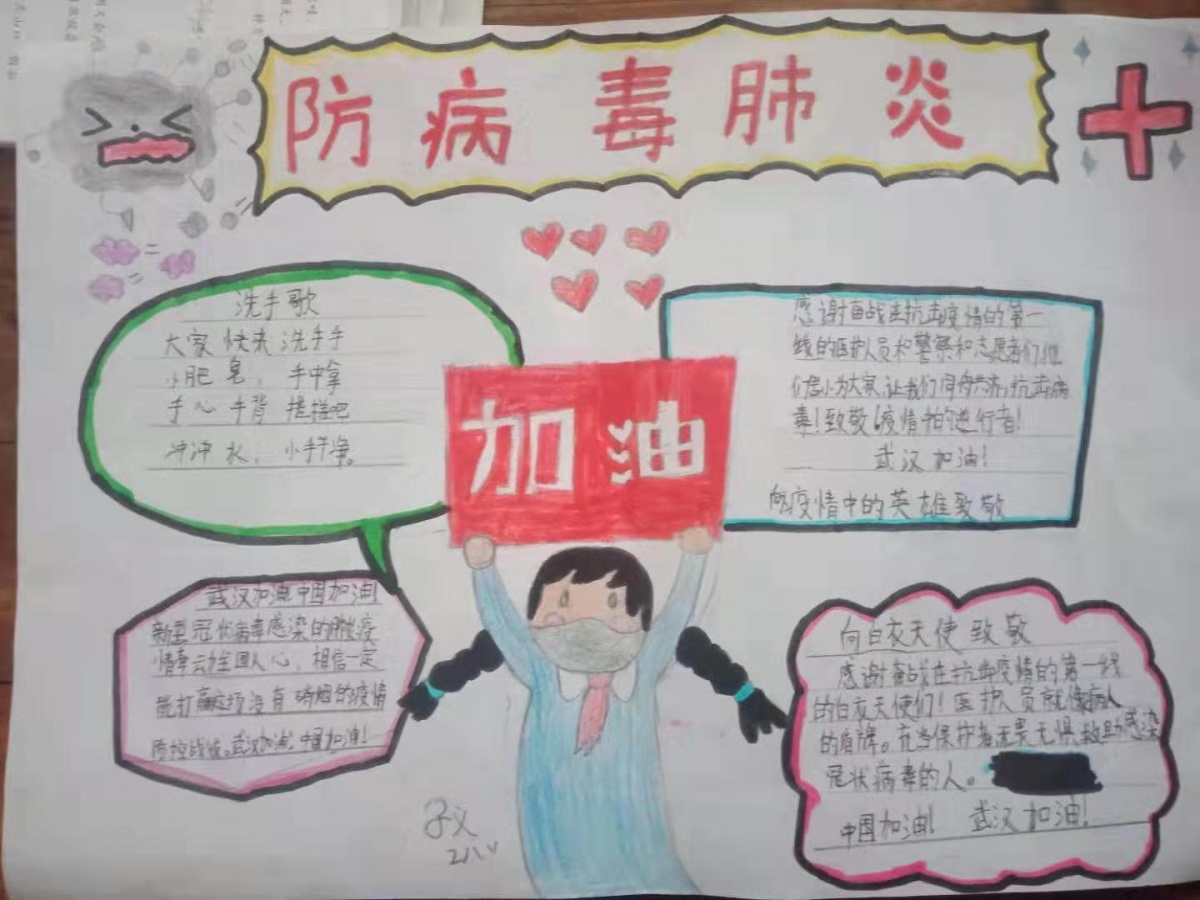 防病毒肺炎
洗手歌
大家快来洗手手
小肥皂，手中拿
手心手背搓搓吧
冲冲水，小手干净。
加油
感谢奋战在抗击疫情的第一
线的医护人员和警察和志愿者们，他
们舍小为大家，让我们同舟共济，抗击病
毒！致敬疫情中的逆行者！
武汉加油！
向疫情中的英雄致敬
武汉加油 中国加油！
新型冠状病毒感染的肺炎疫
情牵动全国人心，相信一定
能打赢这场没有硝烟的疫情
防控战役。武汉加油！中国加油！
向白衣天使致敬
感谢奋战在抗击疫情的第一线
的白衣天使们！医护人员就像病人
的盾牌。充当保护者，无畏无惧，救助感染
冠状病毒的人。
中国加油！ 武汉加油！